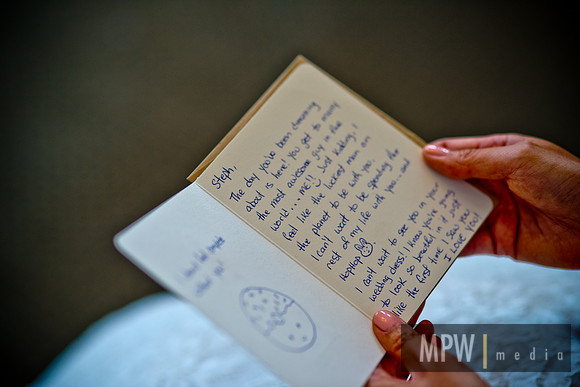 Steph,
The day you've been dreaming
about is here! You get to marry
the most awesome guy in the
world....ME!! Just kidding, I
feel like the luckiest man on
the planet to be with you.
I can't wait to be spending the
rest of my life with you...and
I can't wait to see you in your
wedding dress! I know you're going
to look so beautiful in it just
like the first time I saw you
I Love You!
MPW | media